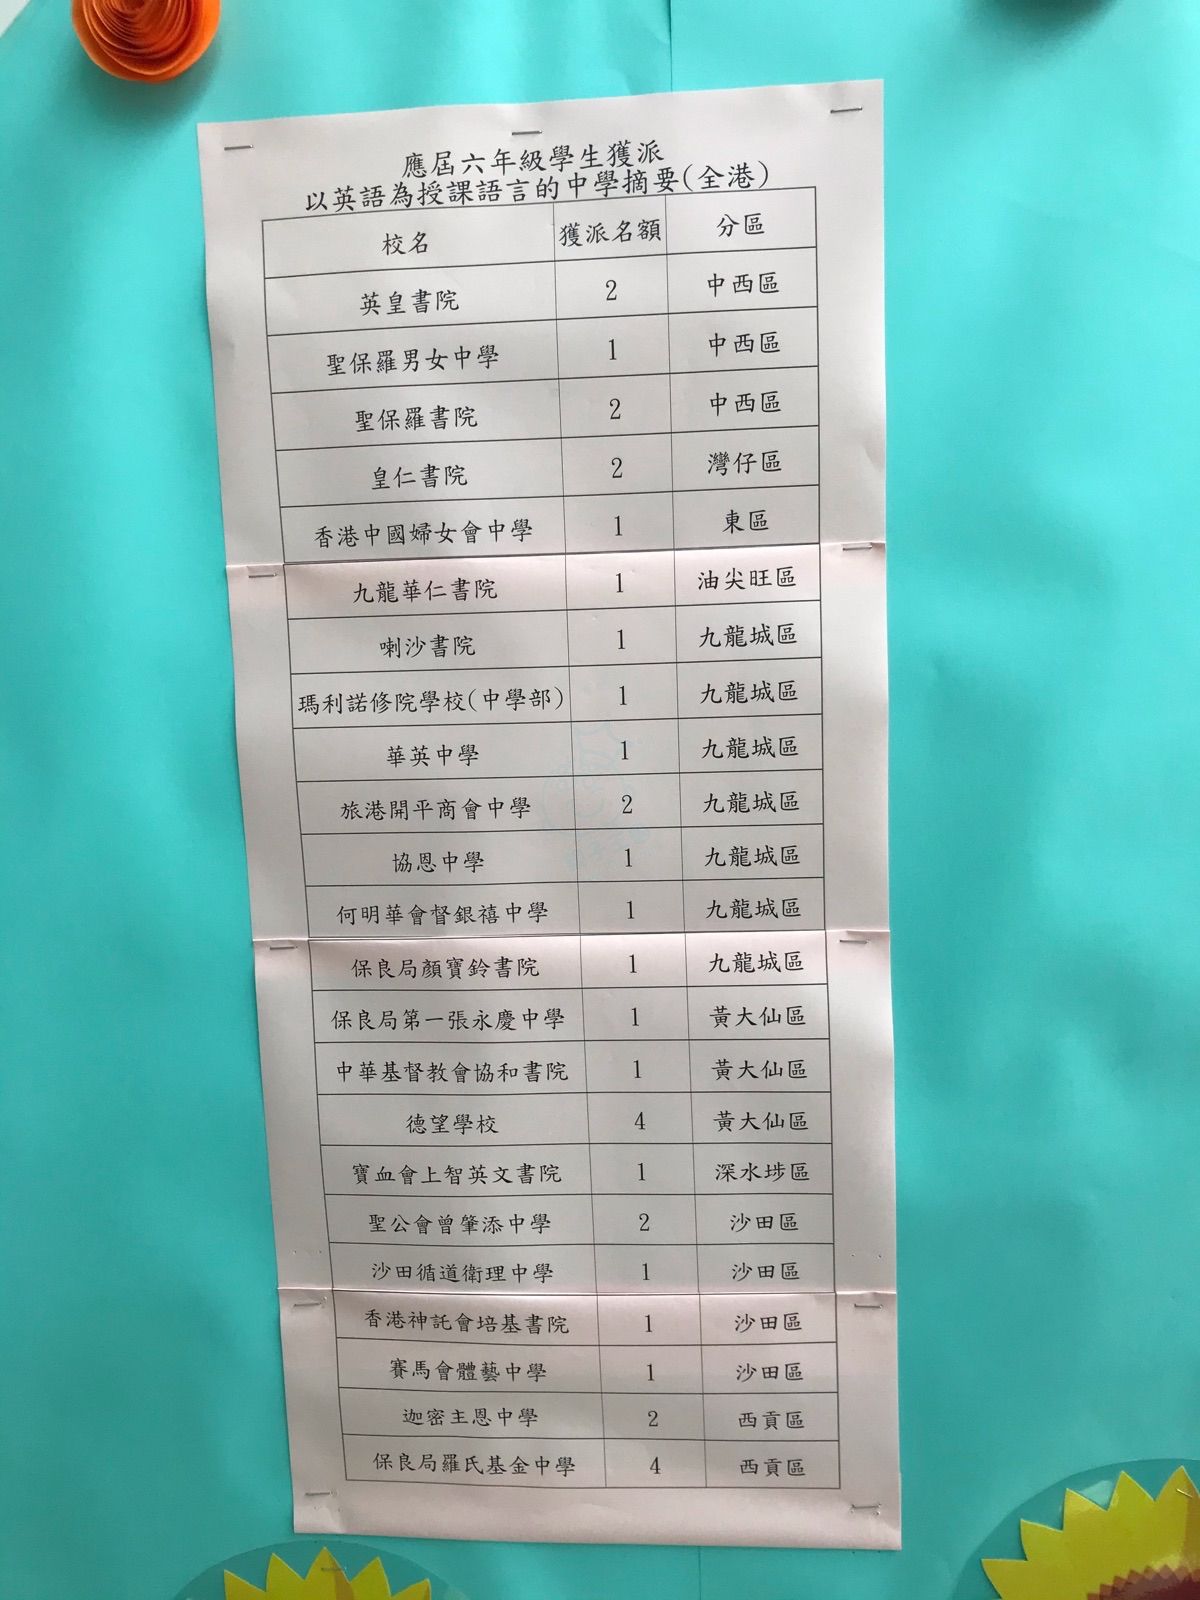 應屆六年級學生獲派
以英語為授課語言的中學摘要(全港)
校名 獲派名額 分區
英皇書院 2 中西區
聖保羅男女中學 1 中西區
聖保羅書院 2 中西區
皇仁書院 2 灣仔區
香港中國婦女會中學 1 東區
九龍華仁書院 1 油尖旺區
喇沙書院 1 九龍城區
瑪利諾修院學校(中學部) 1 九龍城區
華英中學 1 九龍城區
旅港開平商會中學 2 九龍城區
協恩中學 1 九龍城區
何明華會督銀禧中學 1 九龍城區
保良局顏寶鈴書院 1 九龍城區
保良局第一張永慶中學 1 黃大仙區
中華基督教會協和書院 1 黃大仙區
德望學校 4 黃大仙區
寶血會上智英文書院 1 深水埗區
聖公會曾肇添中學 2 沙田區
沙田循道衛理中學 1 沙田區
香港神託會培基書院 1 沙田區
賽馬會體藝中學 1 沙田區
迦密主恩中學 2 西貢區
保良局羅氏基金中學 4 西貢區